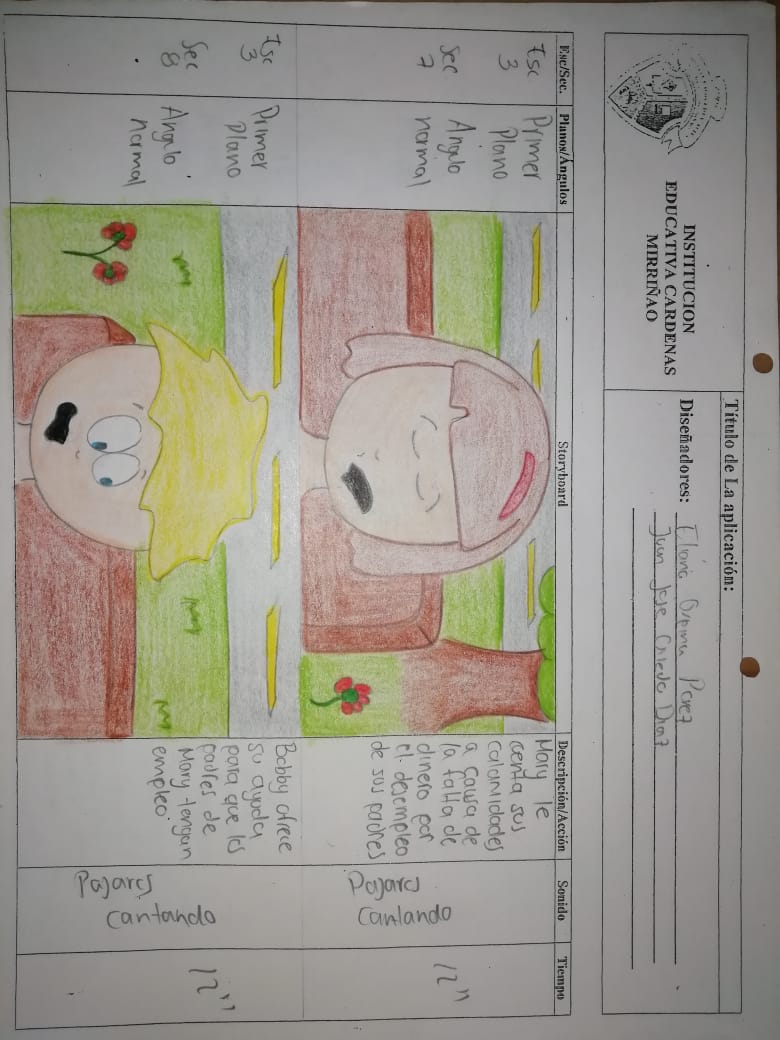 INSTITUCION
EDUCATIVA CARDENAS
MIRRIÑAO
Título de La aplicación:
Diseñadores: Eliana Ospina Perez
Juan Jose Diaz
Esc/Sec. Planos/Ángulos Storyboard Descripción/Acción Sonido Tiempo
Esc
3
Sec
7
Primer
Plano
Angulo
normal
Mary le
centa sus
calamidades
a causa de
la falta de
dinero por
el desempleo
de sus padres
Pajares
Cantando
12"
Esc
3
Sec
8
Primer
Plano
Angulo
normal
Bobby ofrece
su ayuda
para que los
padres de
Mary tengan
empleo
Pajares
Cantando
12"